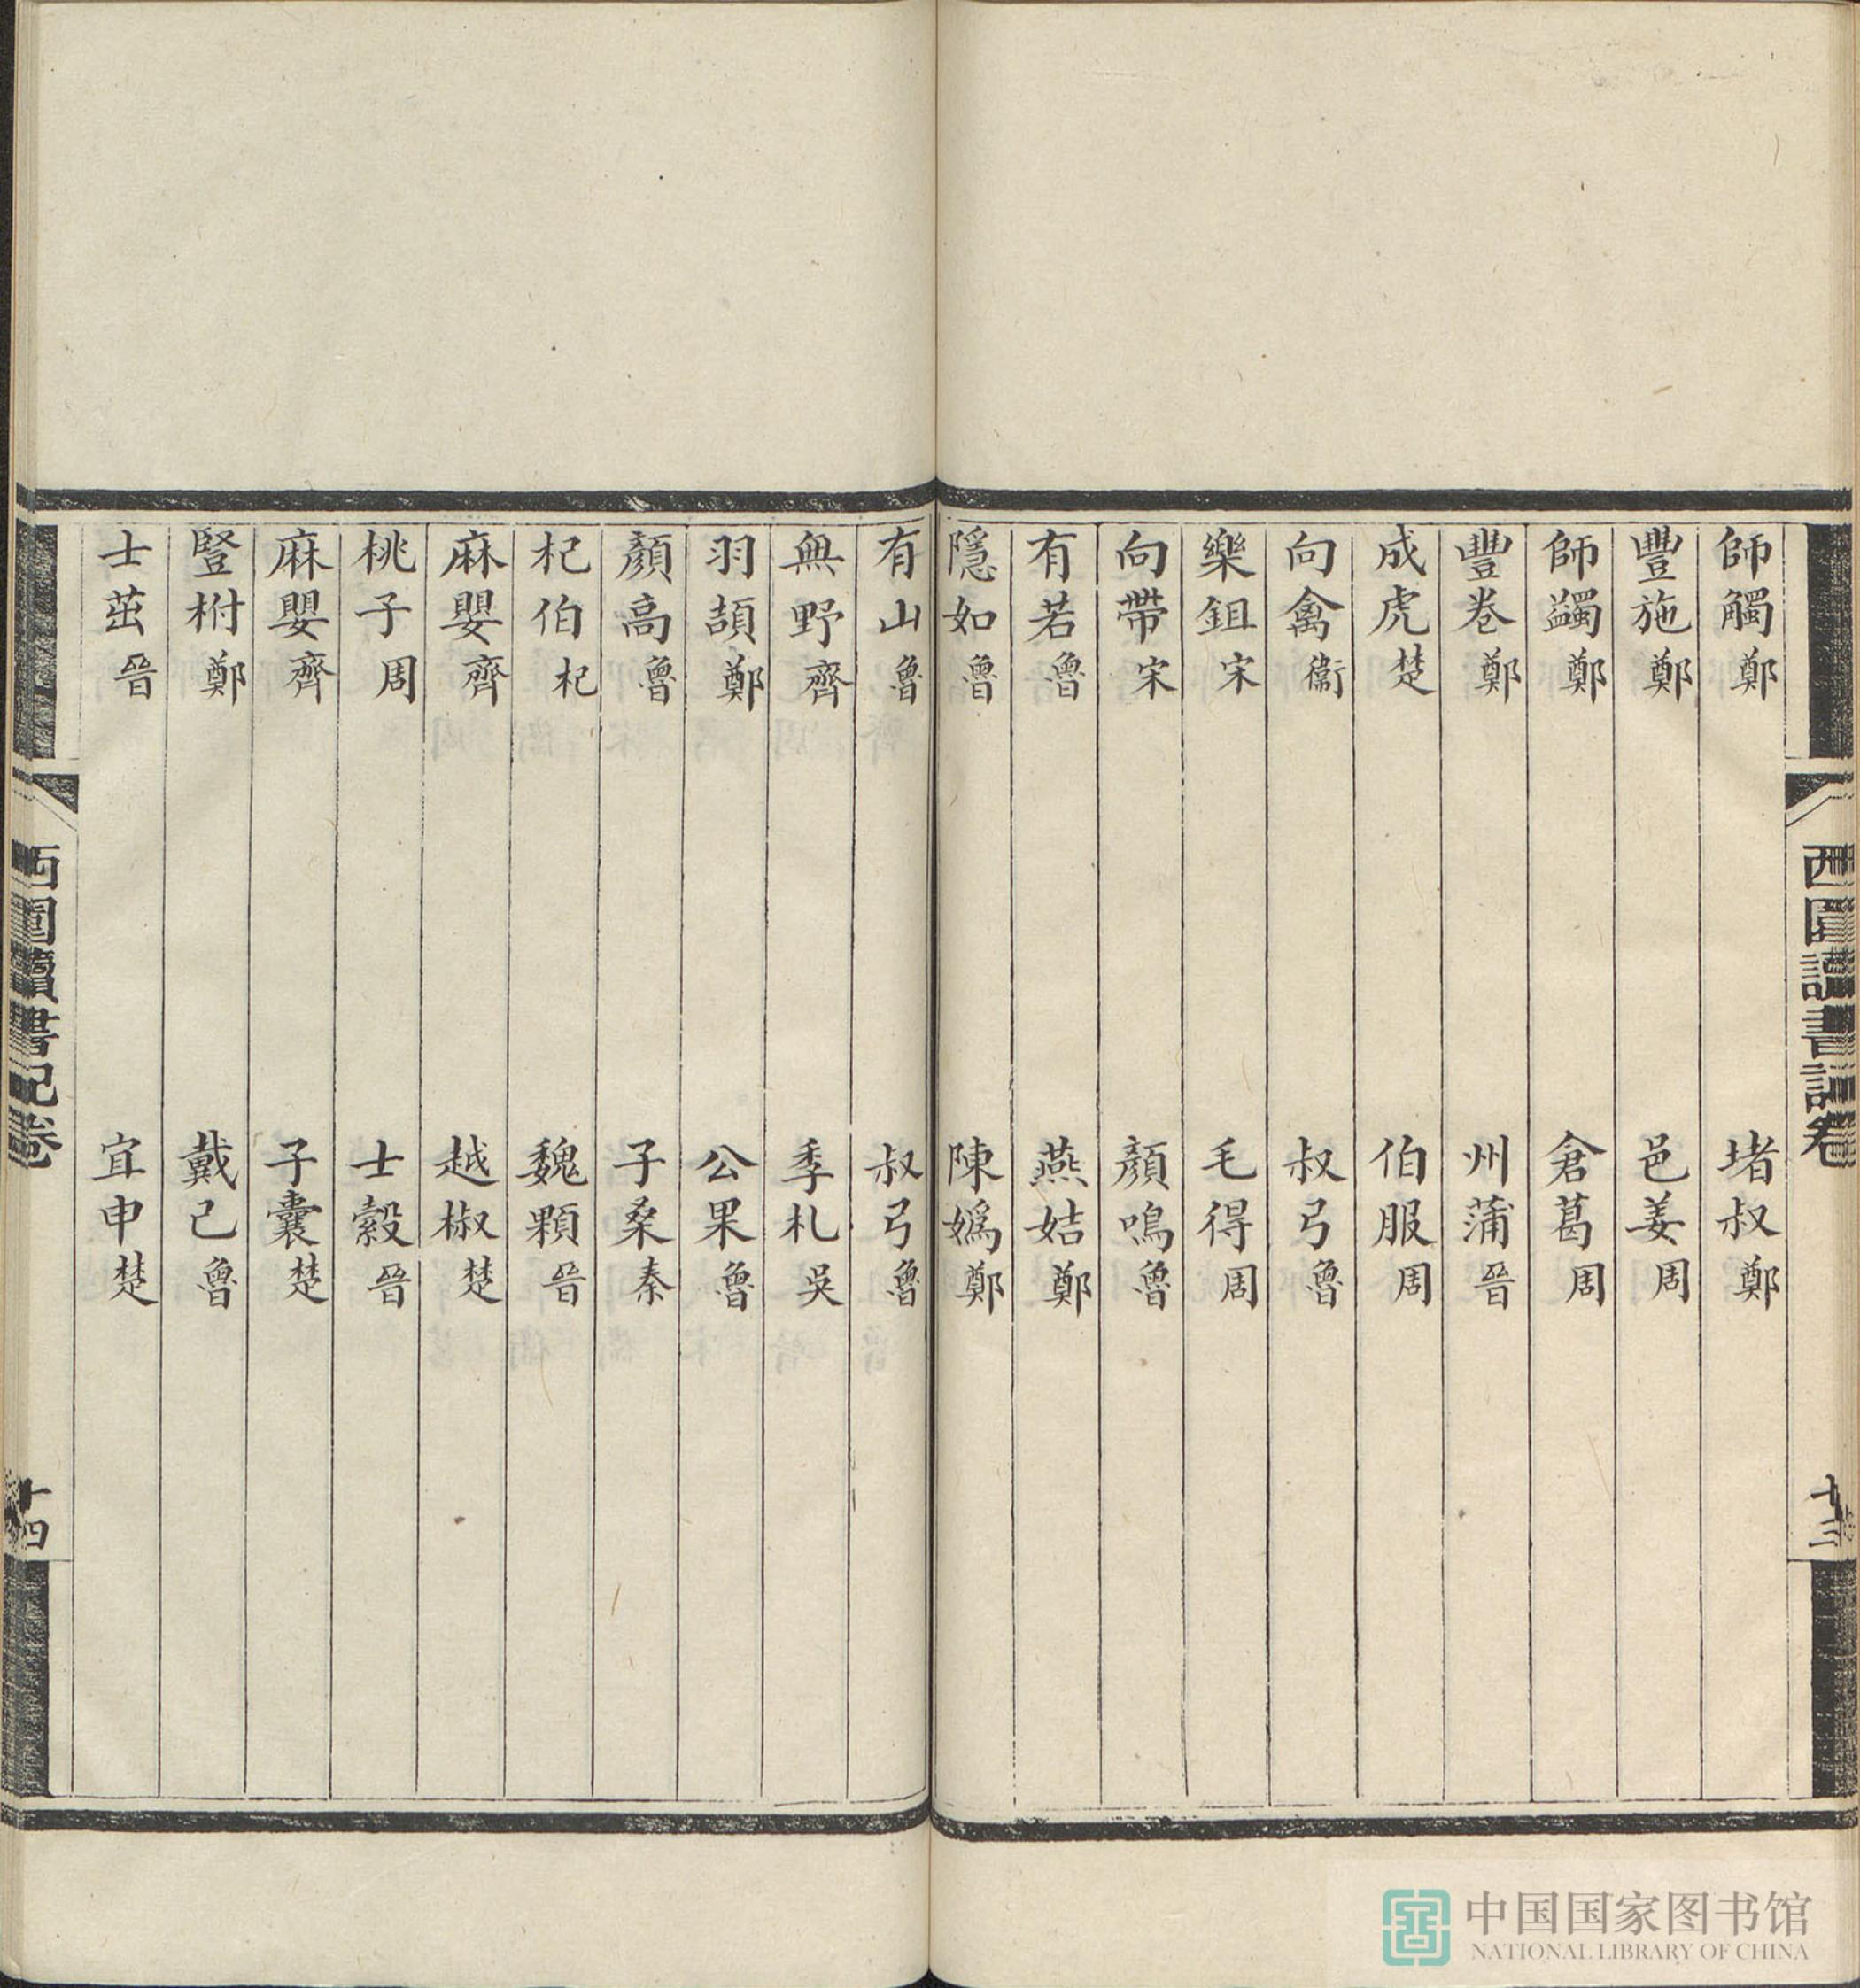 師觸鄭　堵叔鄭
豐施鄭　邑姜周
師蠲鄭　倉葛周
豐卷鄭　州蒲晉
成虎楚　伯服周
向禽衞　叔弓魯
樂鉏宋　毛得周
向帶宋　顏鳴魯
有若魯　燕姞鄭
隱如魯　陳嬀鄭
有山魯　叔弓魯
無野齊　季札吳
羽頡鄭　公果魯
顏高魯　子桑秦
杞伯杞　魏顆晉
麻嬰齊　越椒楚
桃子周　士縠晉
麻嬰齊　子囊楚
豎柎鄭　戴己魯
士茁晉　宜申楚
西圃讀書記卷
十三
西圃讀書記卷
十四
中国国家图书馆
NATIONAL LIBRARY OF CHINA